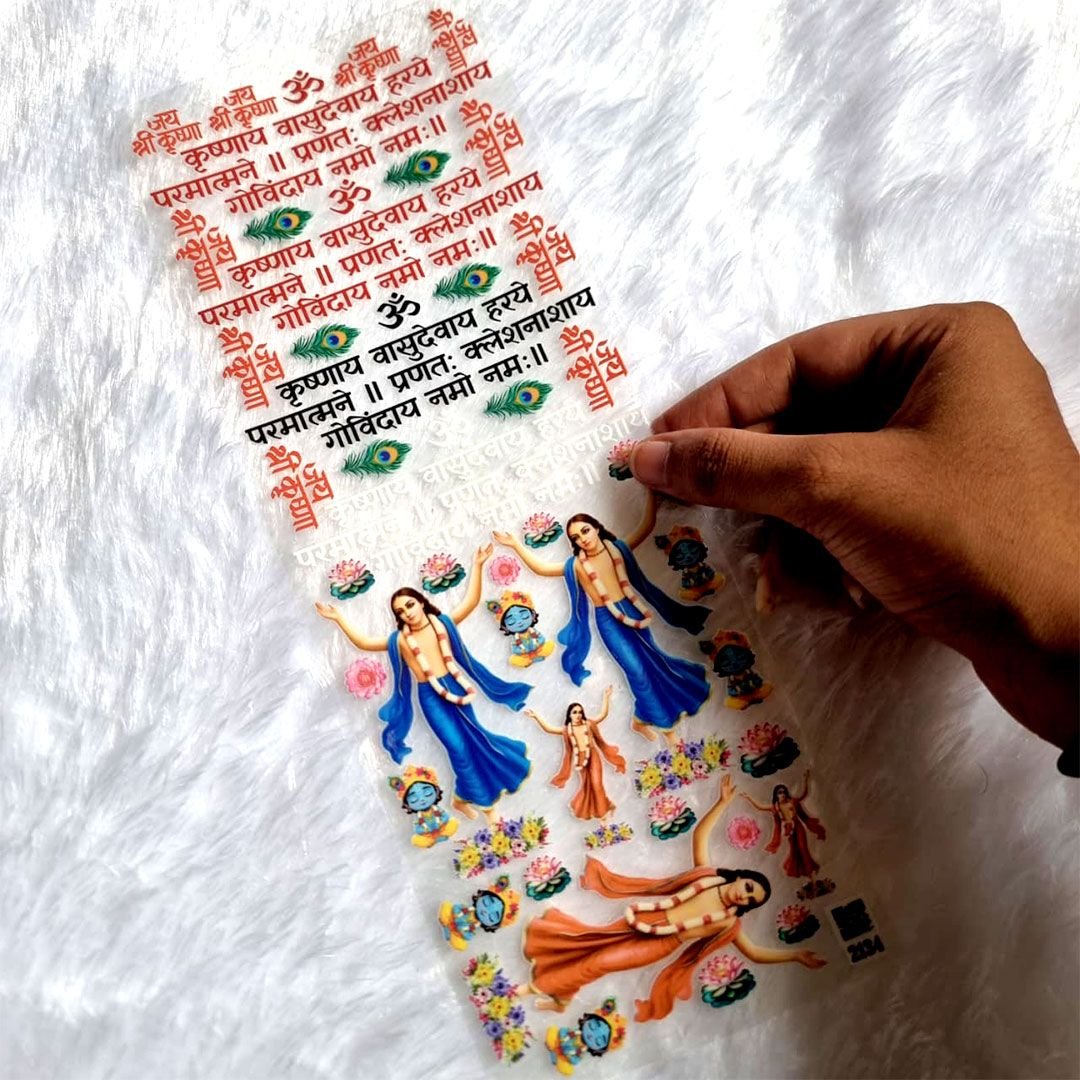 जय
श्री कृष्णा
जय
श्री कृष्णा
जय
श्री कृष्णा
जय
श्री कृष्णा
ॐ
कृष्णाय वासुदेवाय हरये
परमात्मने ॥ प्रणतः क्लेशनाशाय
गोविंदाय नमो नमः॥
जय
श्री कृष्णा
जय
श्री कृष्णा
ॐ
कृष्णाय वासुदेवाय हरये
परमात्मने ॥ प्रणतः क्लेशनाशाय
गोविंदाय नमो नमः॥
जय
श्री कृष्णा
जय
श्री कृष्णा
ॐ
कृष्णाय वासुदेवाय हरये
परमात्मने ॥ प्रणतः क्लेशनाशाय
गोविंदाय नमो नमः॥
जय
श्री कृष्णा
जय
श्री कृष्णा
ॐ
कृष्णाय वासुदेवाय हरये
परमात्मने ॥ प्रणतः क्लेशनाशाय
गोविंदाय नमो नमः॥
2134